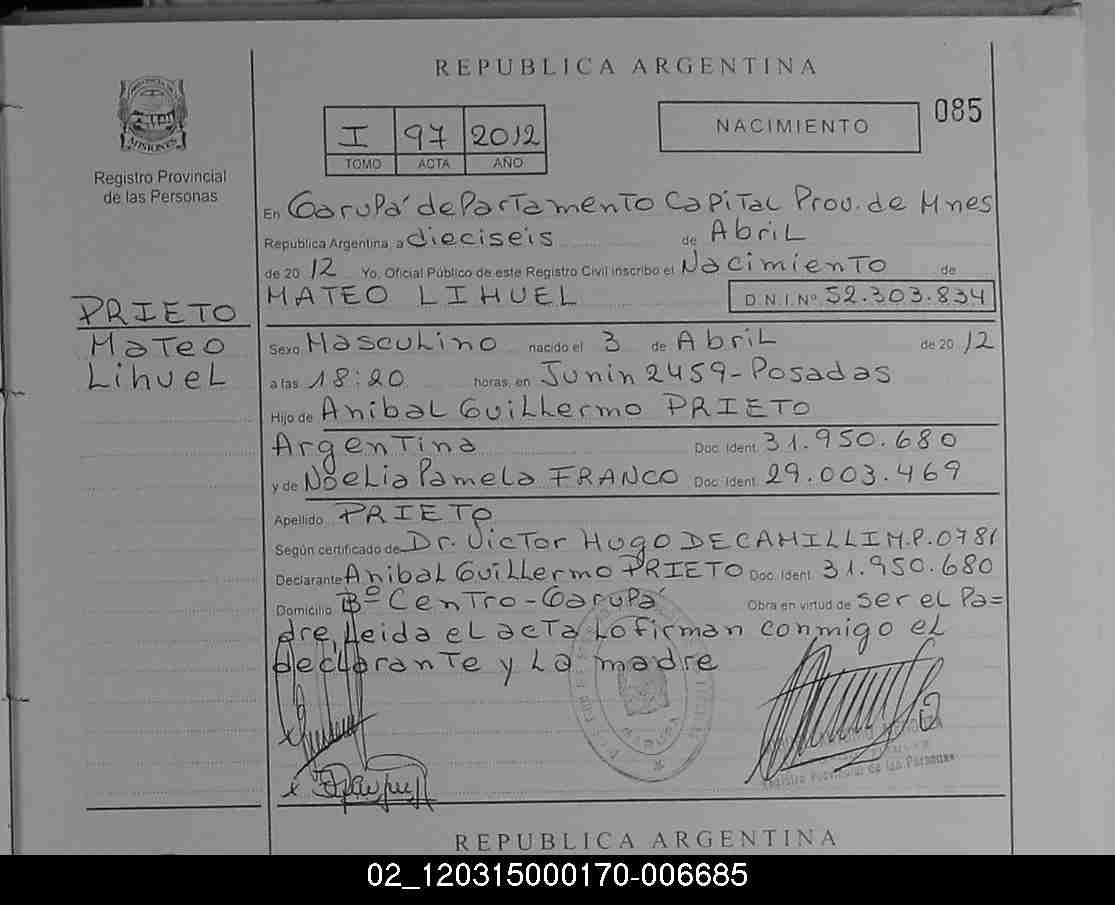 REPUBLICA ARGENTINA
PROVINCIA DE
MISIONES
Registro Provincial
de las Personas
I 97 2012
TOMO ACTA AÑO
NACIMIENTO
085
En Garupá departamento Capital Prov. de Mnes
Republica Argentina, a dieciseis de Abril
de 20 12 Yo, Oficial Público de este Registro Civil inscribo el Nacimiento de
MATEO LIHUEL D.N.I. Nº 52.303.834
PRIETO
Mateo
Lihuel
Sexo Masculino nacido el 3 de Abril de 20 12
a las 18:20 horas, en Junin 2459-Posadas
Hijo de Anibal Guillermo PRIETO
Argentina Doc. Ident. 31.950.680
y de Noelia Pamela FRANCO Doc. Ident. 29.003.469
Apellido PRIETO
Según certificado de Dr. Victor Hugo DECAMILLI M.P.0781
Declarante Anibal Guillermo PRIETO Doc. Ident. 31.950.680
Domicilio Bº Centro-Garupá Obra en virtud de ser el Pa=
dre, leida el acta lo firman conmigo el
declarante y la madre
Registro Provincial de las Personas
REPUBLICA ARGENTINA
02_120315000170-006685